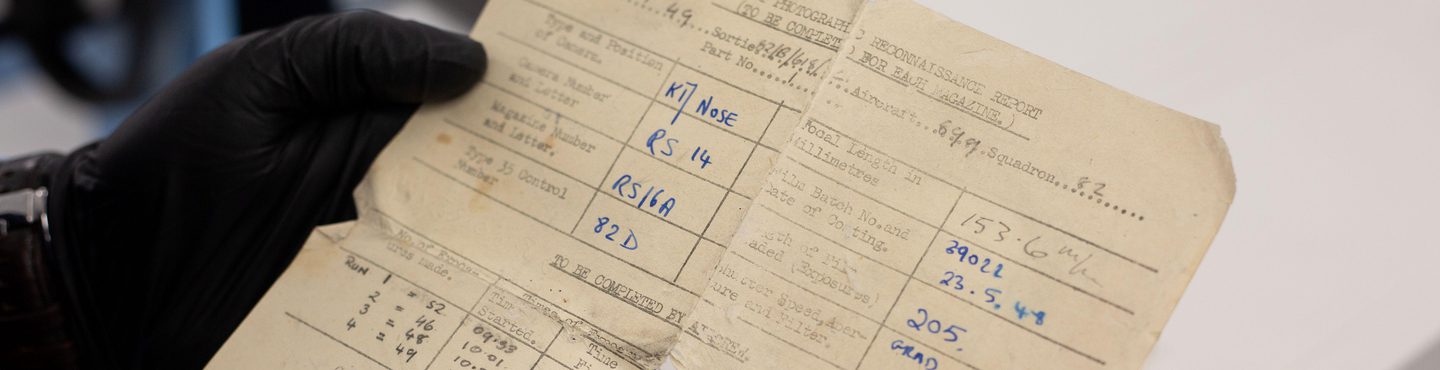 PHOTOGRAPHIC RECONNAISSANCE REPORT
(TO BE COMPLETED FOR EACH MAGAZINE.)
49 Sortie 82/B/618 Aircraft 699. Squadron 82
Part No.
Type and Position of Camera. K17 NOSE
Camera Number and Letter RS 14
Magazine Number and Letter. RS/6A
Type 35 Control Number 82D
Focal Length in Millimetres 153.6 m/m
Batch No. and Date of Coating. 39022 23.5.48
(Exposures) 205.
Shutter Speed, and Filter. GRAD
TO BE COMPLETED BY
No. of made.
RUN 1 = 52
2 = 46
3 = 48
4 = 49
Times of
Time Started.
09.53
10.01
10.
Time